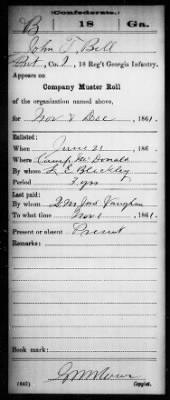 Confederate.
B 18 Ga.
John T. Bell
Pvt, Co. I, 18 Reg't Georgia Infantry.
Appears on
Company Muster Roll
of the organization named above,
for Nov & Dec, 1861.
Enlisted:
When June 21, 186
Where Camp McDonald
By whom L. E. Bleckley
Period 3 yrs
Last paid:
By whom Vaughan
To what time Nov 1, 1861.
Present or absent Present
Remarks:
Book mark:
(642) Copyist.